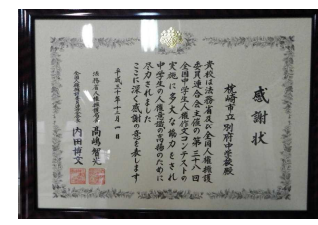 感謝状
枕崎市立別府中学校殿
貴校は法務省及び全国人権擁護
委員連合会主催の第三十八回
全国中学生人権作文コンテストの
実施に多大な協力をされ
中学生の人権意識の高揚のために
尽力されました
ここに深く感謝の意を表します
平成三十年十二月一日
法務省人権擁護局長 高嶋智光
全国人権擁護委員連合会長 内田博文